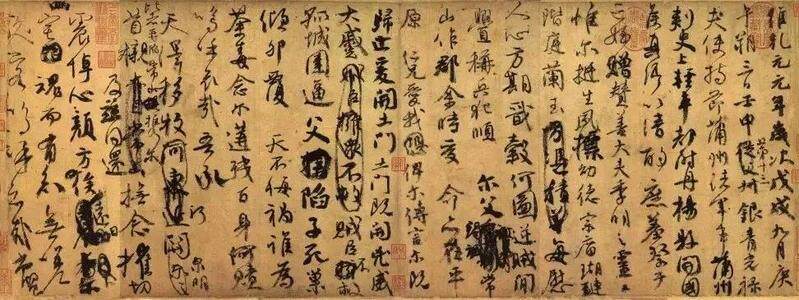 維乾元元年歲次戊戌九月庚
午朔三日壬申第十三叔銀青光祿
夫使持節蒲州諸軍事蒲州
刺史上輕車都尉丹楊縣開國
侯真卿以清酌庶羞祭于
亡姪贈贊善大夫季明之靈曰
惟爾挺生夙標幼德宗廟瑚璉
階庭蘭玉每慰
人心方期戩穀何圖逆賊閒
釁稱兵犯順爾父竭誠常
山作郡余時受命亦在平
原仁兄愛我俾爾傳言爾既
歸止爰開土門土門既開凶威
大蹙賊臣不救
孤城圍逼父陷子死巢
傾卵覆天不悔禍誰為
荼毒念爾遘殘百身何贖
嗚呼哀哉吾承
天澤移牧河關泉明
比者再陷常山携爾
首櫬及茲同還
撫念摧切
震悼心顏方俟遠日
宅魂而有知無嗟
久客嗚呼哀哉尚饗